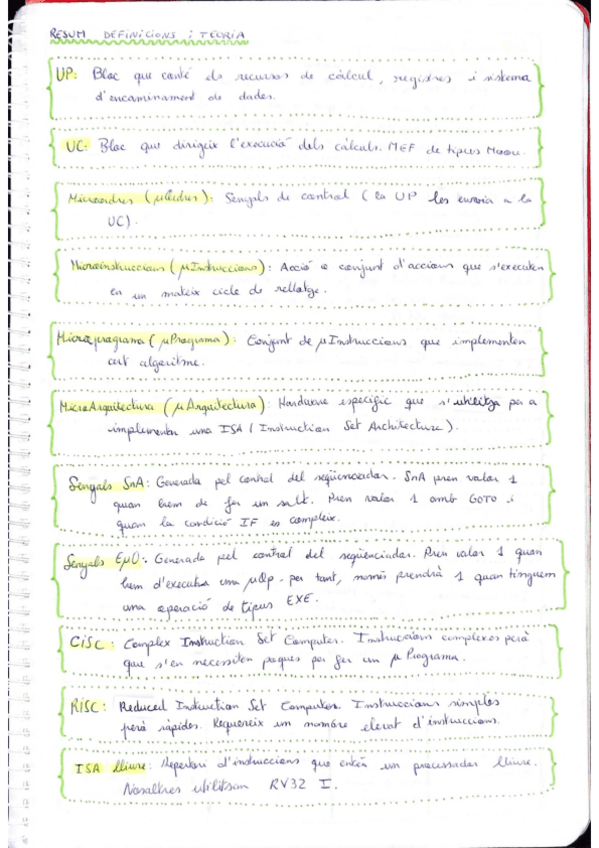 RESUM DEFINICIONS i TEORIA
UP: Bloc que conté els recursos de càlcul, registres i sistema
d'encaminament de dades.
UC: Bloc que dirigeix l'execució dels càlculs. MEF de tipus Moore.
Microordres (µOrdres): Senyals de control (la UP les envia a la
UC).
Microinstruccions (µInstruccions): Acció o conjunt d'accions que s'executen
en un mateix cicle de rellotge.
Microprograma (µPrograma): Conjunt de µInstruccions que implementen
cert algoritme.
MicroArquitectura (µArquitectura): Hardware específic que s'utilitza per a
implementar una ISA (Instruction Set Architecture).
Senyals SnA: Generada pel control del seqüenciador. SnA pren valor 1
quan hem de fer un salt. Pren valor 1 amb GOTO i
quan la condició IF es compleix.
Senyals EµO: Generada pel control del seqüenciador. Pren valor 1 quan
hem d'executar una µOp. per tant, només prendrà 1 quan tinguem
una operació de tipus EXE.
CISC: Complex Instruction Set Computer. Instruccions complexes però
que s'en necessiten poques per fer un µPrograma.
RISC: Reduced Instruction Set Computer. Instruccions simples
però ràpides. Requereix un nombre elevat d'instruccions.
ISA lliure: Repertori d'instruccions que entén un processador lliure.
Nosaltres utilitzem RV32 I.